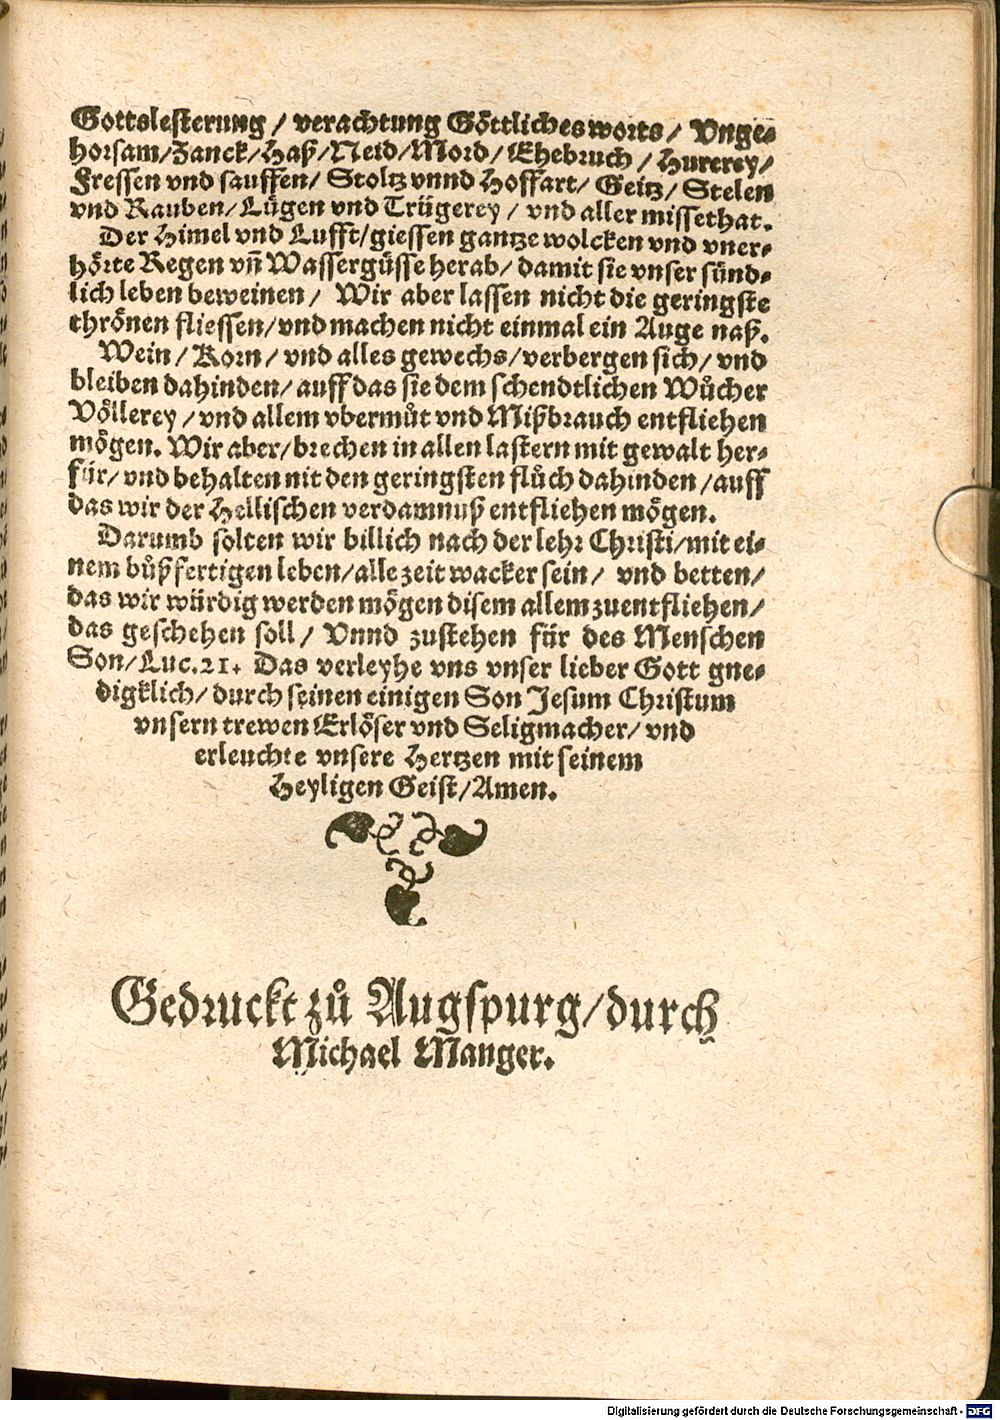 Gottslesterung / verachtung Göttliches worts / Vnge-
horsam/Zanck/Haß/Neid/Mord/Ehebruch / Hurerey/
Fressen vnd sauffen/ Stoltz vnnd Hoffart/ Geitz/ Stelen
vnd Rauben/Lügen vnd Trügerey / vnd aller missethat.
Der Himel vnd Lufft/giessen gantze wolcken vnd vner-
hörte Regen vñ Wassergüsse herab/ damit sie vnser sünd-
lich leben beweinen/ Wir aber lassen nicht die geringste
thrönen fliessen/vnd machen nicht einmal ein Auge naß.
Wein/ Korn/ vnd alles gewechs/verbergen sich/ vnd
bleiben dahinden/ auff das sie dem schendtlichen Wůcher
Völlerey / vnd allem vbermůt vnd Mißbrauch entfliehen
mögen. Wir aber/brechen in allen lastern mit gewalt her-
für/ vnd behalten nit den geringsten flůch dahinden /auff
das wir der Hellischen verdamnuß entfliehen mögen.
Darumb solten wir billich nach der lehr Christi/mit ei-
nem bůßfertigen leben/alle zeit wacker sein/ vnd betten/
das wir würdig werden mögen disem allem zuentfliehen/
das geschehen soll/ Vnnd zustehen für des Menschen
Son/Luc.21. Das verleyhe vns vnser lieber Gott gne-
digklich/ durch seinen einigen Son Jesum Christum
vnsern trewen Erlöser vnd Seligmacher/ vnd
erleuchte vnsere Hertzen mit seinem
Heyligen Geist/Amen.
Gedruckt zů Augspurg/durch
Michael Manger.
Digitalisierung gefördert durch die Deutsche Forschungsgemeinschaft - DFG